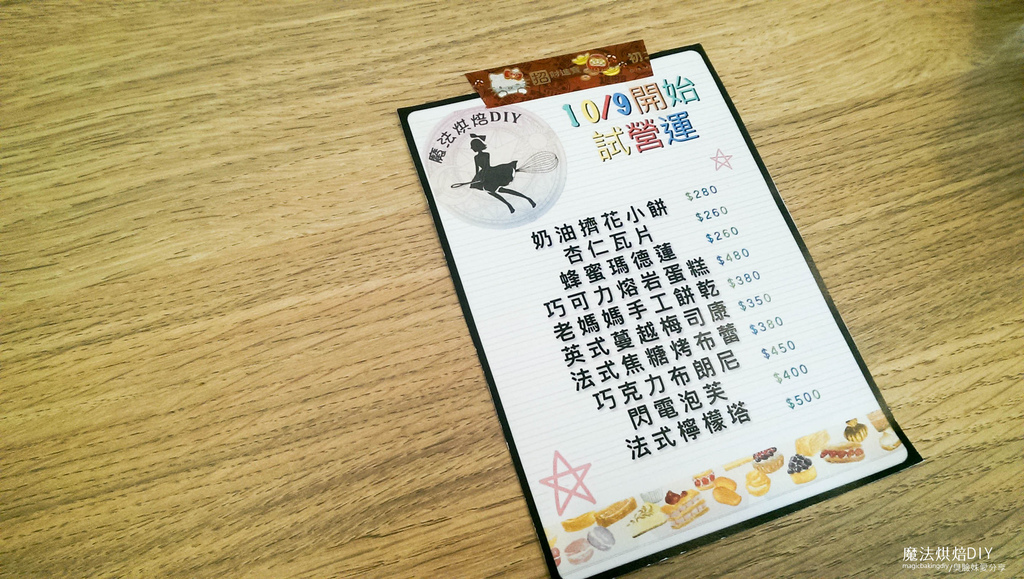 招財進寶
初
10/9開始
試營運
魔法烘焙DIY
奶油擠花小餅 $280
杏仁瓦片 $260
蜂蜜瑪德蓮 $260
巧可力熔岩蛋糕 $480
老媽媽手工餅乾 $380
英式蔓越梅司康 $350
法式焦糖烤布蕾 $380
巧克力布朗尼 $450
閃電泡芙 $400
法式檸檬塔 $500
魔法烘焙DIY
magicbakingdiy